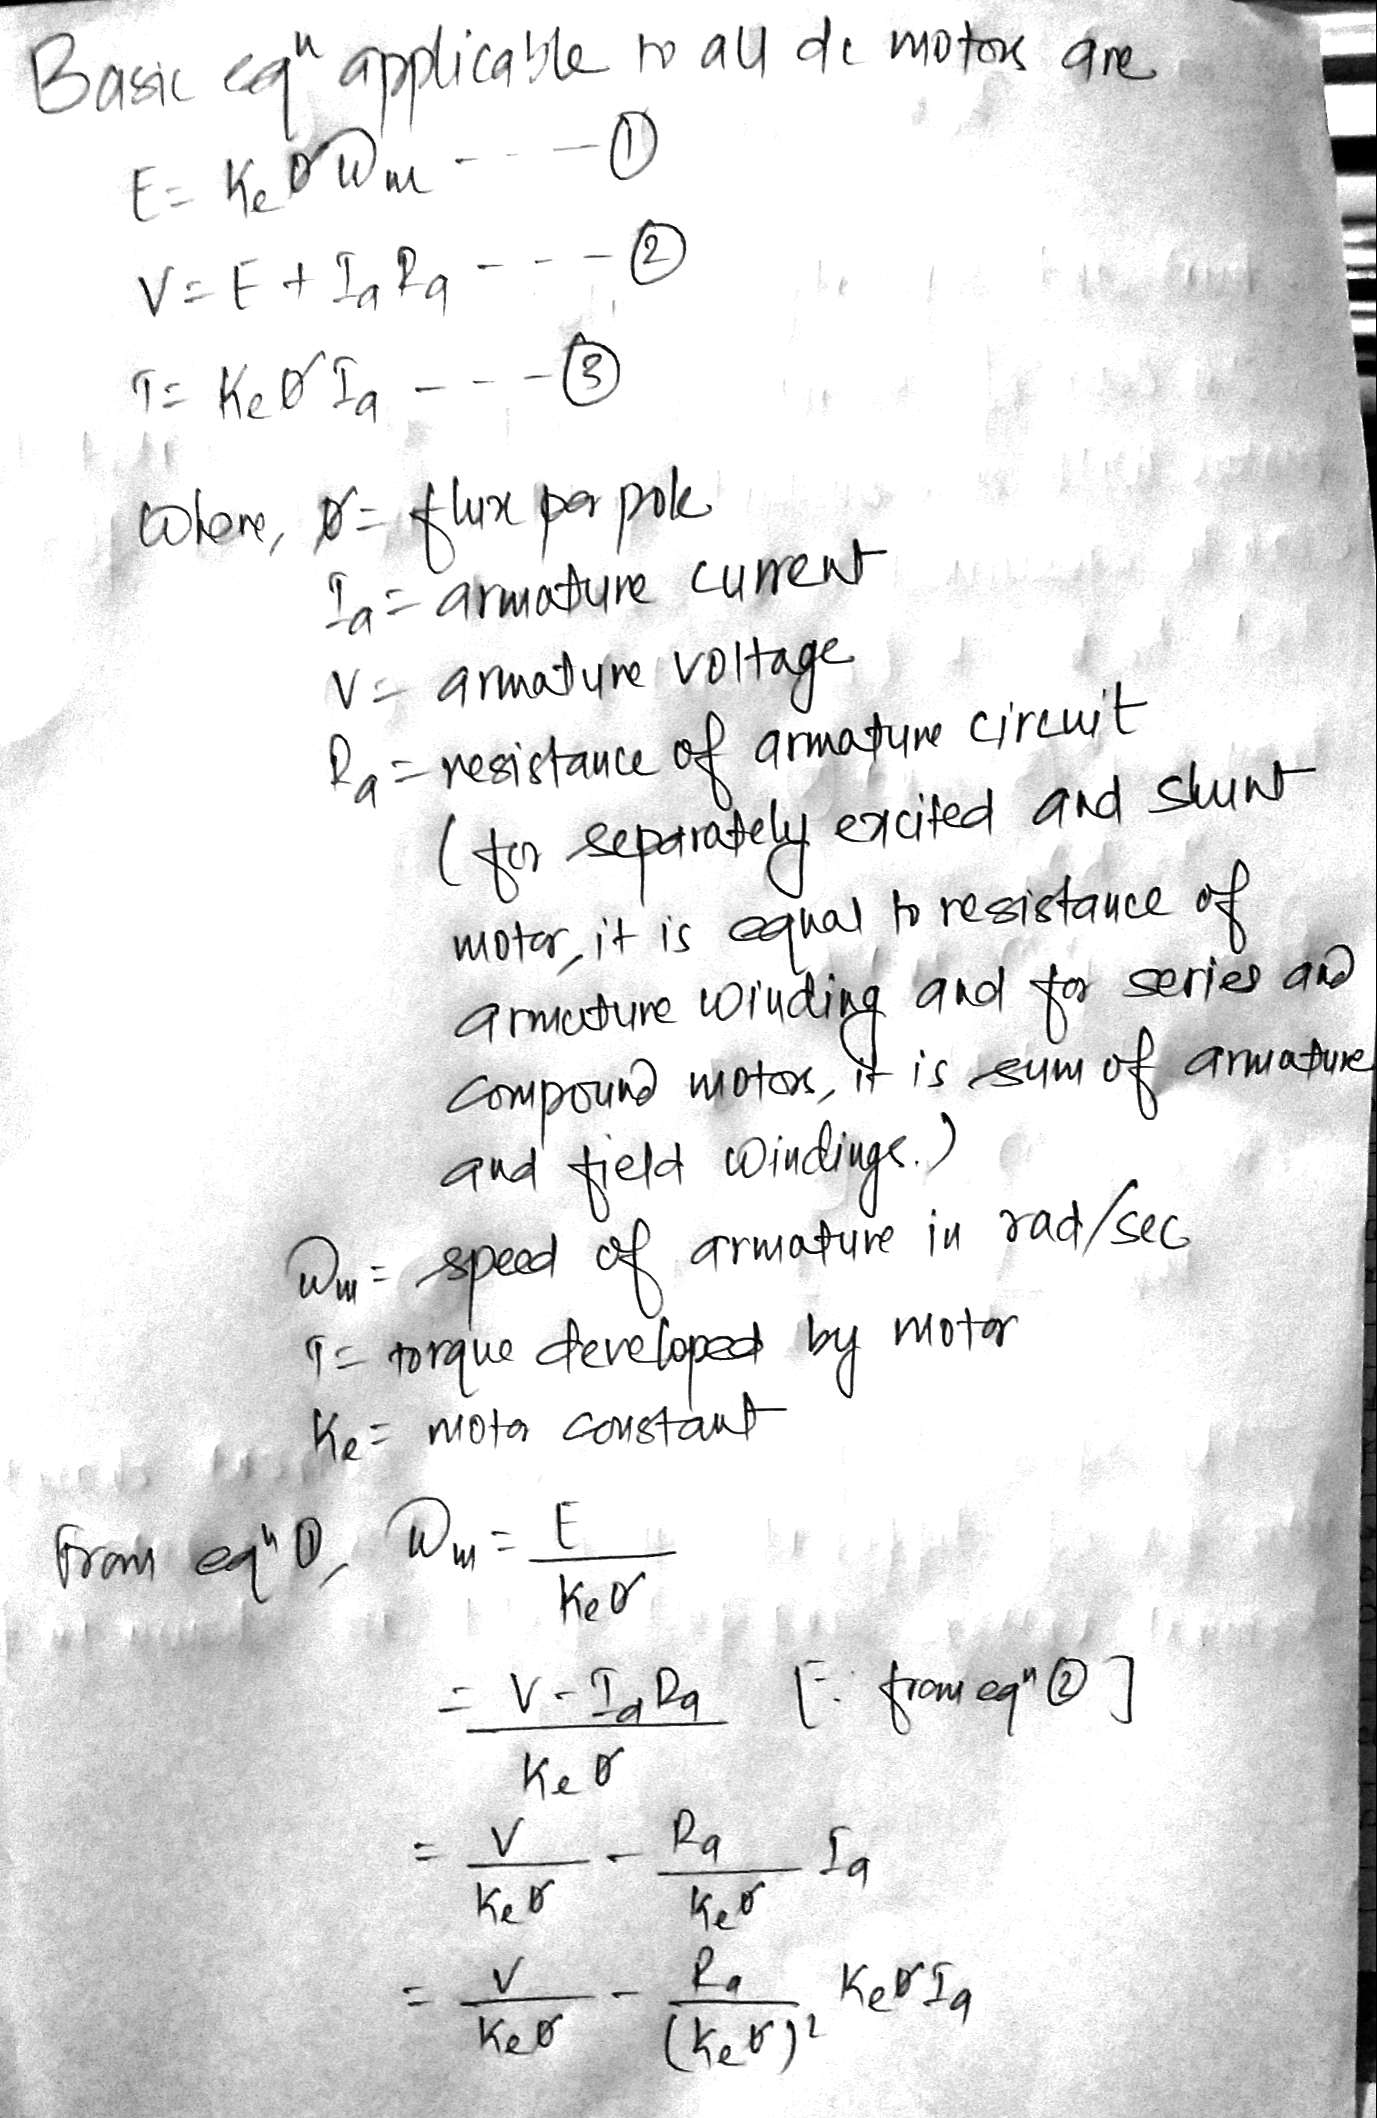 Basic eqⁿ applicable to all dc motors are
E = Ke Ø ωm - - - - ①
V = E + Ia Ra - - - - ②
T = Ke Ø Ia - - - - ③
Where, Ø = flux per pole
Ia = armature current
V = armature voltage
Ra = resistance of armature circuit
( for separately excited and shunt
motor, it is equal to resistance of
armature winding and for series and
compound motors, it is sum of armature
and field windings.)
ωm = speed of armature in rad/sec
T = torque developed by motor
Ke = motor constant
From eqⁿ ①, ωm = E / Ke Ø
= V - Ia Ra / Ke Ø [∵ from eqⁿ ②]
= V / Ke Ø - Ra / Ke Ø Ia
= V / Ke Ø - Ra / (Ke Ø)² Ke Ø Ia